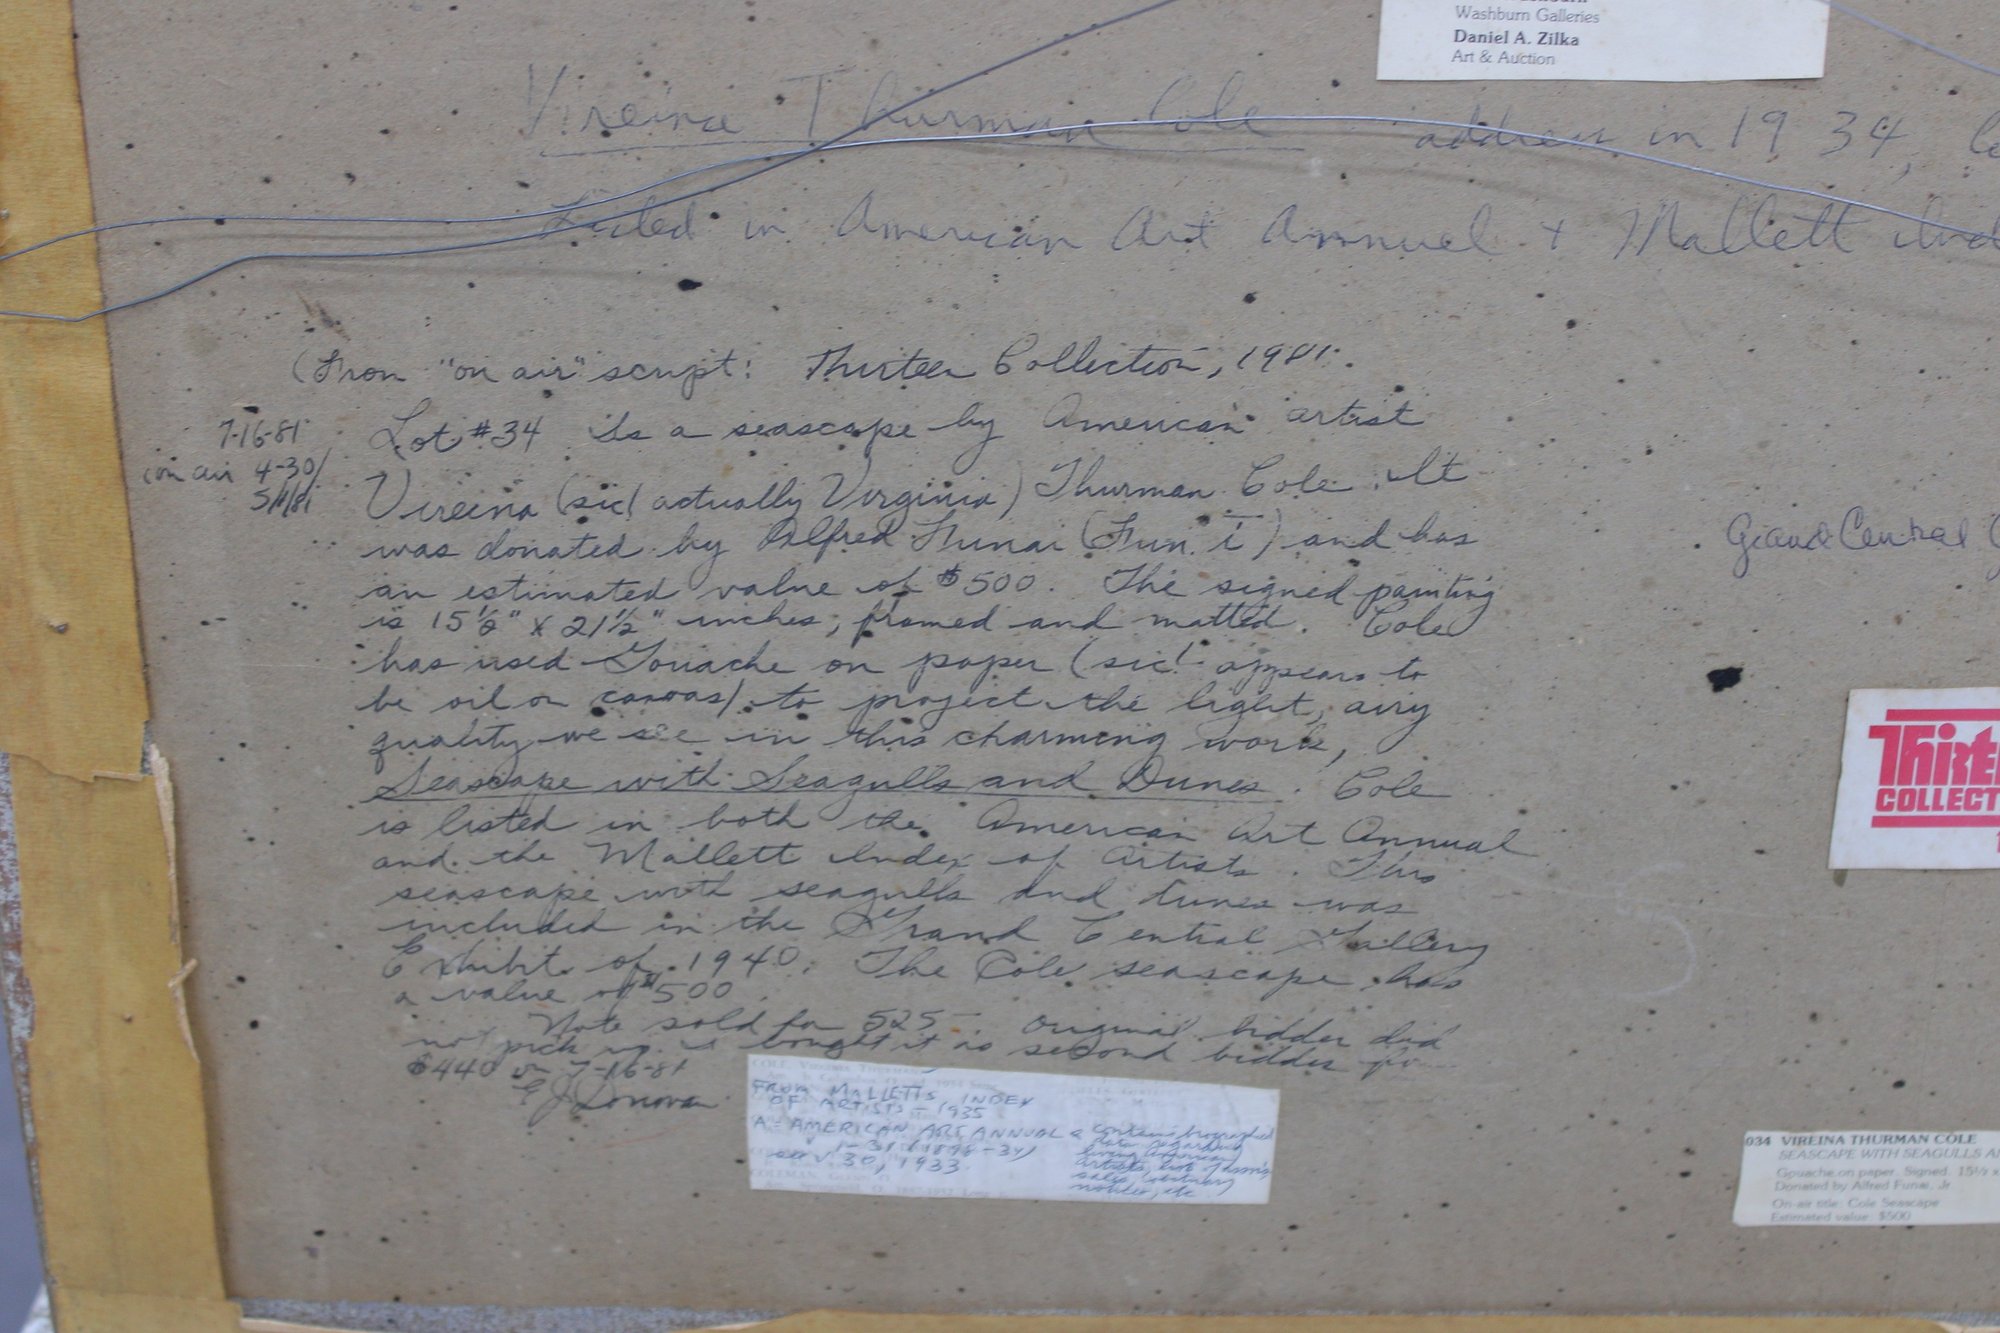 Washburn Galleries
Daniel A. Zilka
Art & Auction
Vireina Thurman Cole address in 1934,
Listed in American Art Annuel + Mallett Ind
(From "on air" script: Thirteen Collection, 1981.
7-16-81
on air 4-30/
5/1/81
Lot #34 is a seascape by American artist
Vireina (sic! actually Virginia) Thurman Cole. It
was donated by Alfred Funai (Fun. i) and has
an estimated value of $500. The signed painting
is 15½" x 21½" inches, framed and matted. Cole
has used Gouache on paper (sic! appears to
be oil on canvas) to project the light, airy
quality we see in this charming work,
Seascape with Seagulls and Dunes. Cole
is listed in both the American Art Annual
and the Mallett Index of Artists. This
seascape with seagulls and dunes was
included in the Grand Central Gallery
Exhibit of 1940. The Cole seascape has
a value of $500
Note sold for 525-. Original bidder did
not pick up. I bought it as second bidder for
$440 on 7-16-81
E J Donovan
Grand Central G
THIRTE
COLLECT
COLE, VIREINA THURMAN
FROM MALLETTS INDEX
OF ARTISTS - 1935
A = AMERICAN ART ANNUAL
v 1-31 (1898-34)
v 30, 1933.
contains biographical
data regarding
living American
artists, list of
sales, obituary
notices, etc
COLEMAN,
034 VIREINA THURMAN COLE
SEASCAPE WITH SEAGULLS A
Gouache on paper. Signed. 15½ x
Donated by Alfred Funai, Jr.
On-air title: Cole Seascape
Estimated value: $500